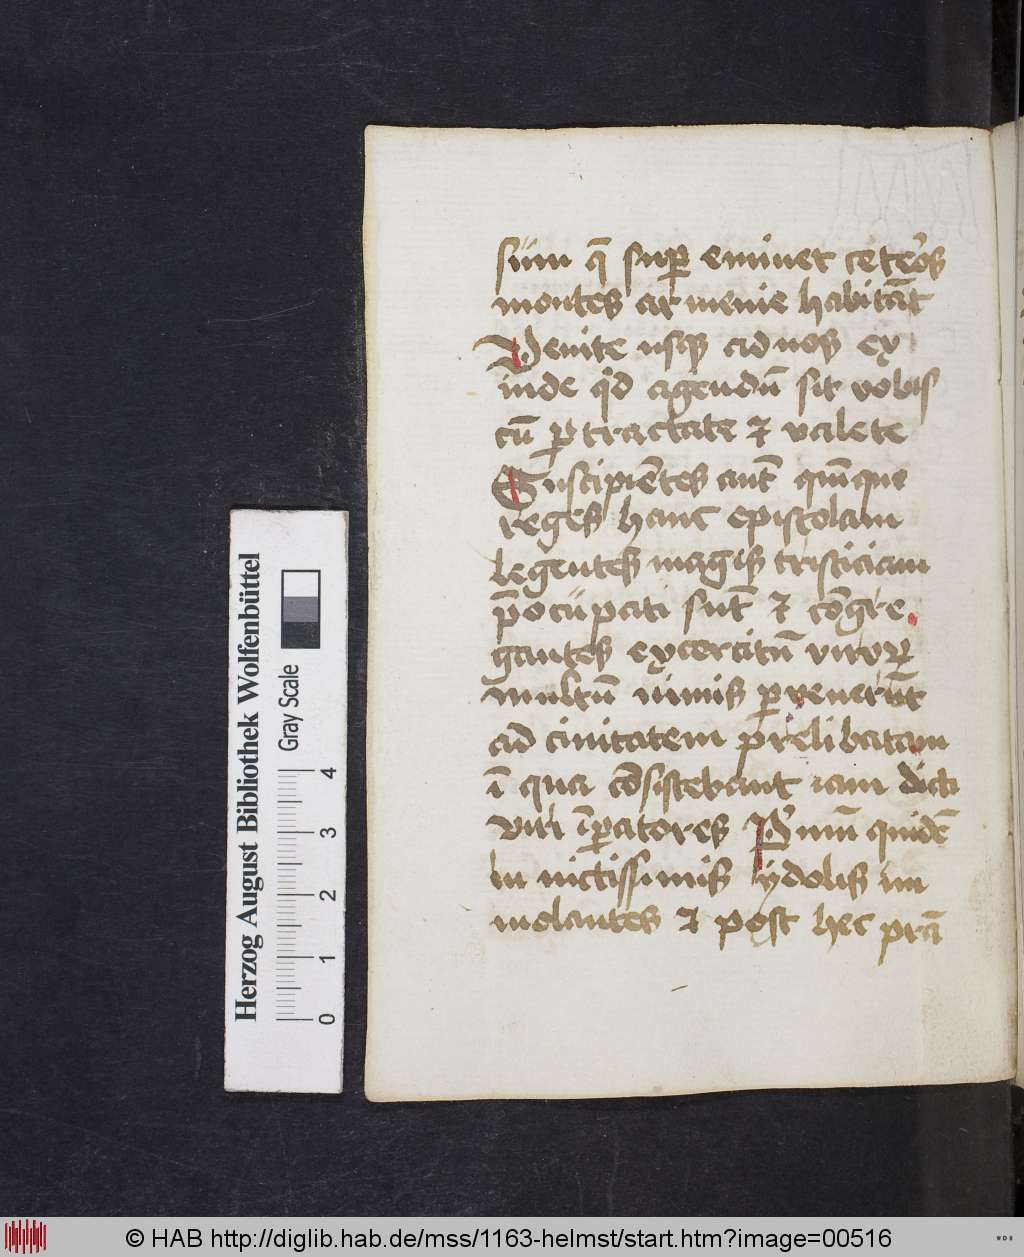 süm q̄ sup̱ eminet ceteros
montes armenie habitāt
Venite usq̨ ad nos ex
inde qd agendū sit vobis
cū p̱tractate et valete
Suscipiētes aut̄ quīque
reges hanc epistolam
legentes magis tristiciam
p̄ocüpati sūt et cōgre
gantes exercitū viroꝝ
multū nimis p̱venerūt
ad ciuitatem prelibatam
ī qua cōsistebant iam dicti
viri īp̱atores Pͥmū quidē
in uictissimis ydolis im
molantes et post hec prā
Herzog August Bibliothek Wolfenbüttel
Gray Scale
0 1 2 3 4
© HAB http://diglib.hab.de/mss/1163-helmst/start.htm?image=00516